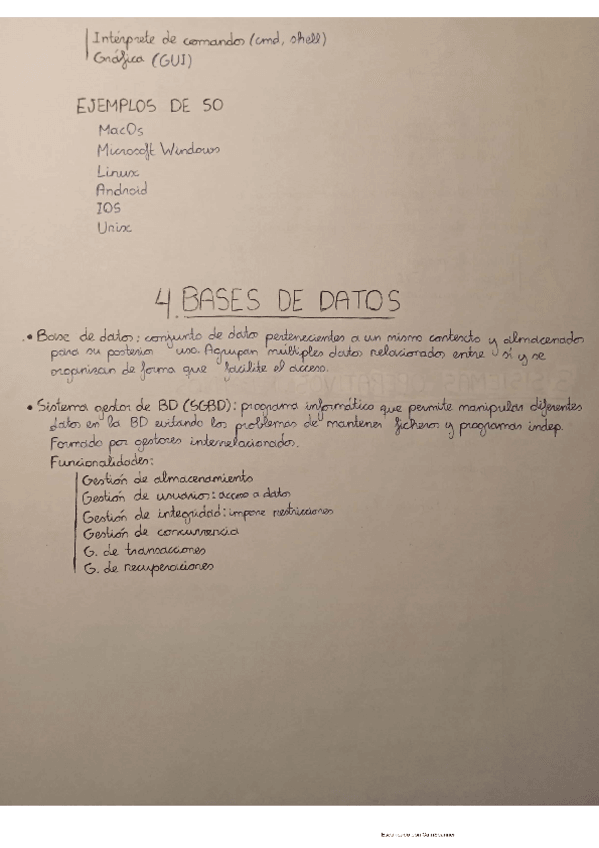 Intérprete de comandos (cmd, shell)
Gráfica (GUI)
EJEMPLOS DE SO
MacOs
Microsoft Windows
Linux
Android
IOS
Unix
4. BASES DE DATOS
• Base de datos: conjunto de datos pertenecientes a un mismo contexto y almacenados
para su posterior uso. Agrupan múltiples datos relacionados entre sí y se
organizan de forma que facilite el acceso.
• Sistema gestor de BD (SGBD): programa informático que permite manipular diferentes
datos en la BD evitando los problemas de mantener ficheros y programas indep.
Formado por gestores interrelacionados.
Funcionalidades:
Gestión de almacenamiento
Gestión de usuarios: acceso a datos
Gestión de integridad: impone restricciones
Gestión de concurrencia
G. de transacciones
G. de recuperaciones
Escaneado con CamScanner